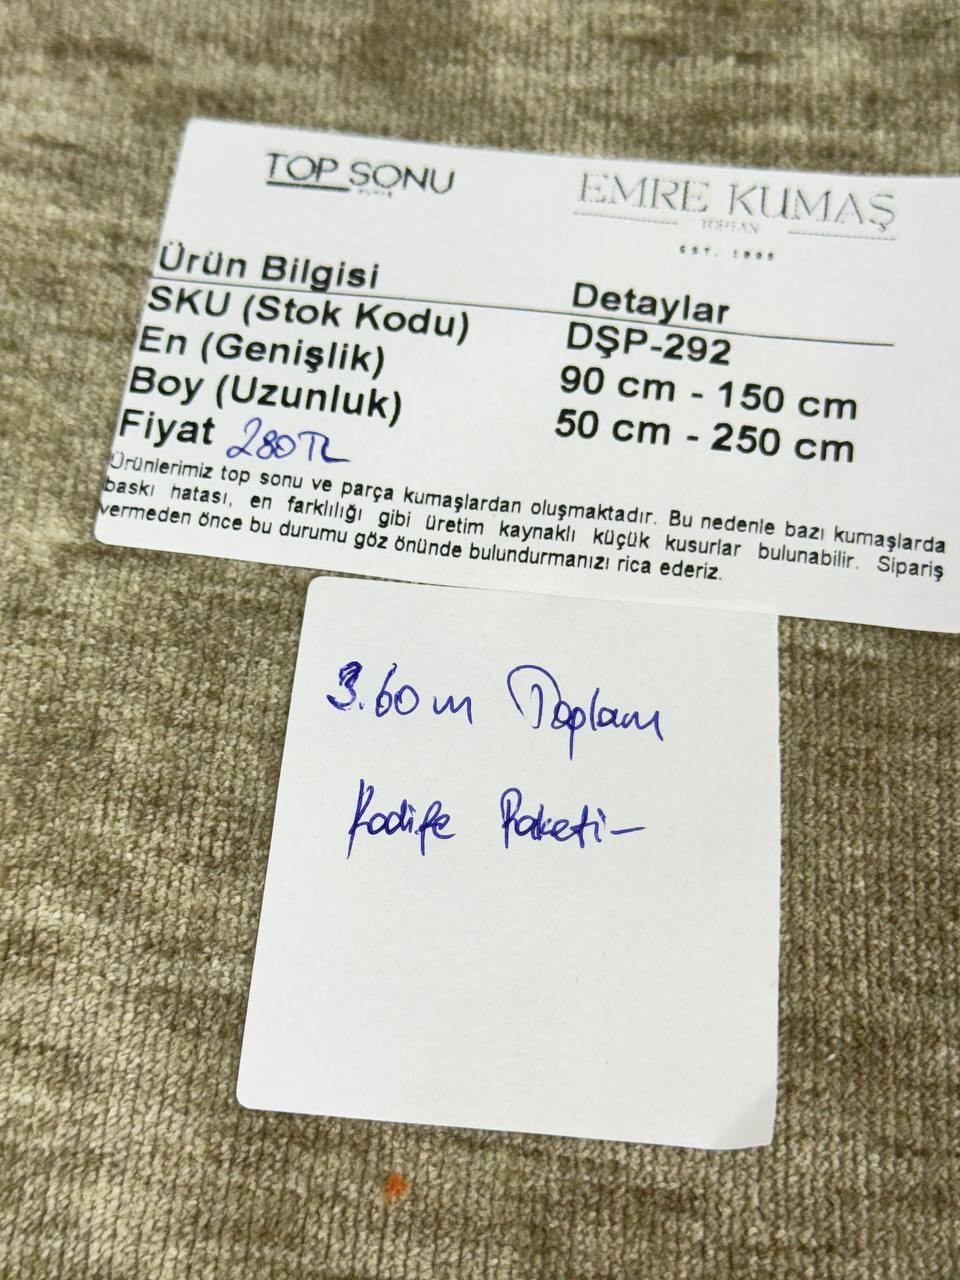 TOP SONU
EMRE KUMAŞ
TOPTAN
EST. 1995
Ürün Bilgisi Detaylar
SKU (Stok Kodu) DŞP-292
En (Genişlik) 90 cm - 150 cm
Boy (Uzunluk) 50 cm - 250 cm
Fiyat 280TL
Ürünlerimiz top sonu ve parça kumaşlardan oluşmaktadır. Bu nedenle bazı kumaşlarda
baskı hatası, en farklılığı gibi üretim kaynaklı küçük kusurlar bulunabilir. Sipariş
vermeden önce bu durumu göz önünde bulundurmanızı rica ederiz.
3.60m Toplam
Kadife Paketi-